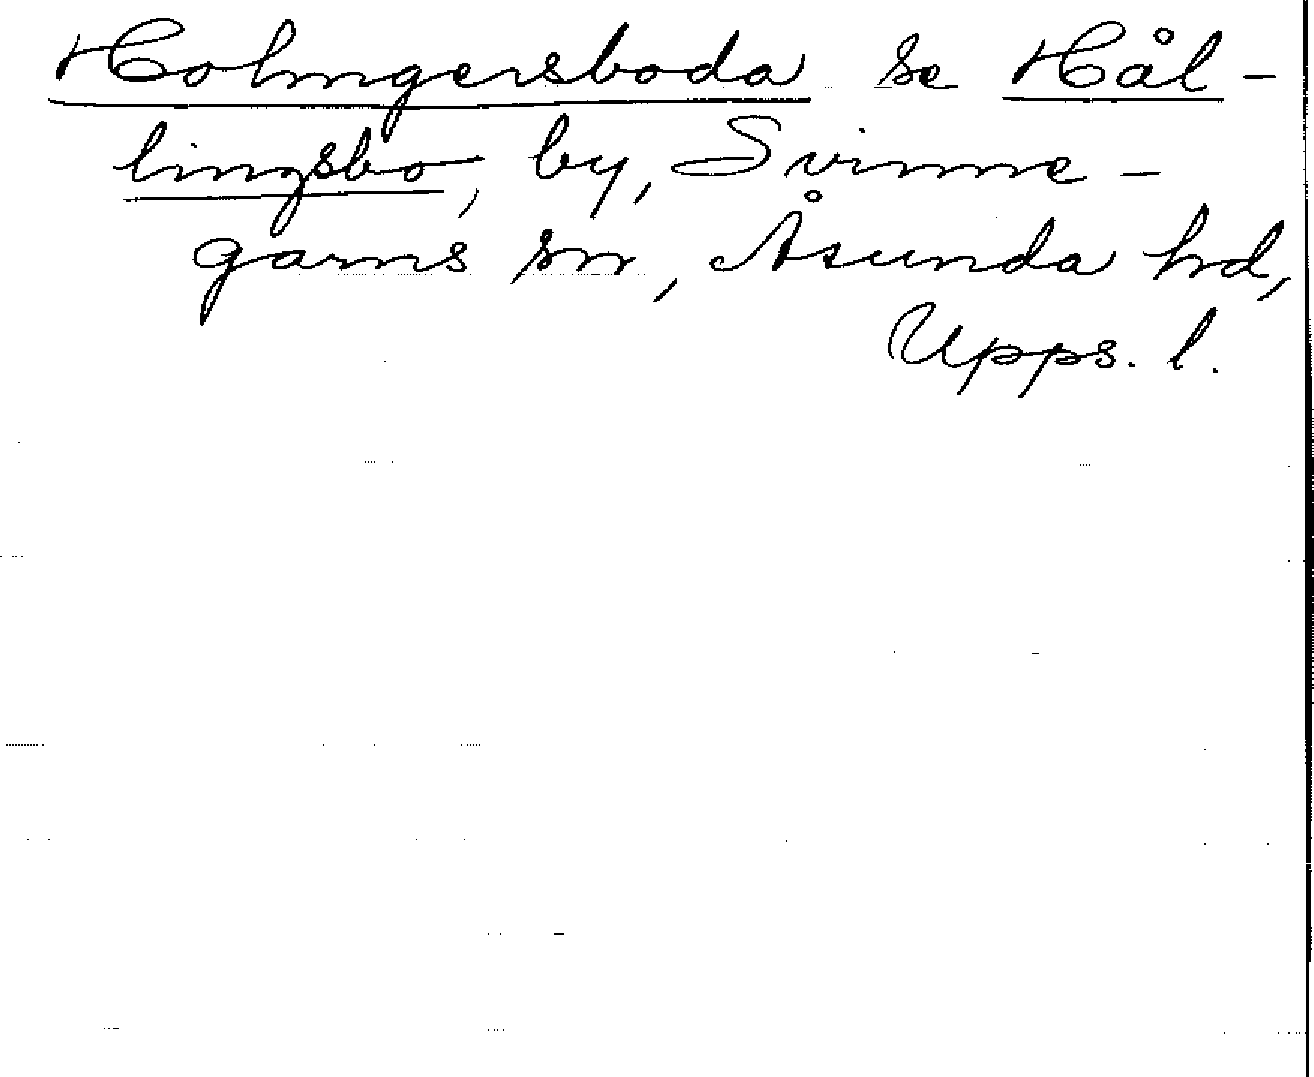 Holmgersboda se Hål-
lingsbo, by, Svinne-
garns sn, Åsunda hd,
Upps. l.